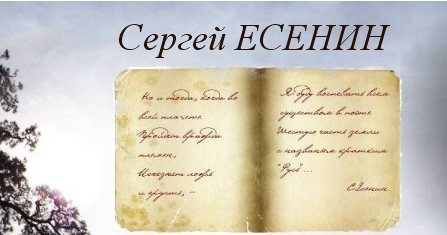 Сергей ЕСЕНИН
Но и тогда, когда во
всей планете
Пройдет вражда
племен,
Исчезнет ложь
и грусть, –
Я буду воспевать всем
существом в поэте
Шестую часть земли
с названьем кратким
"Русь"...
С.Есенин.